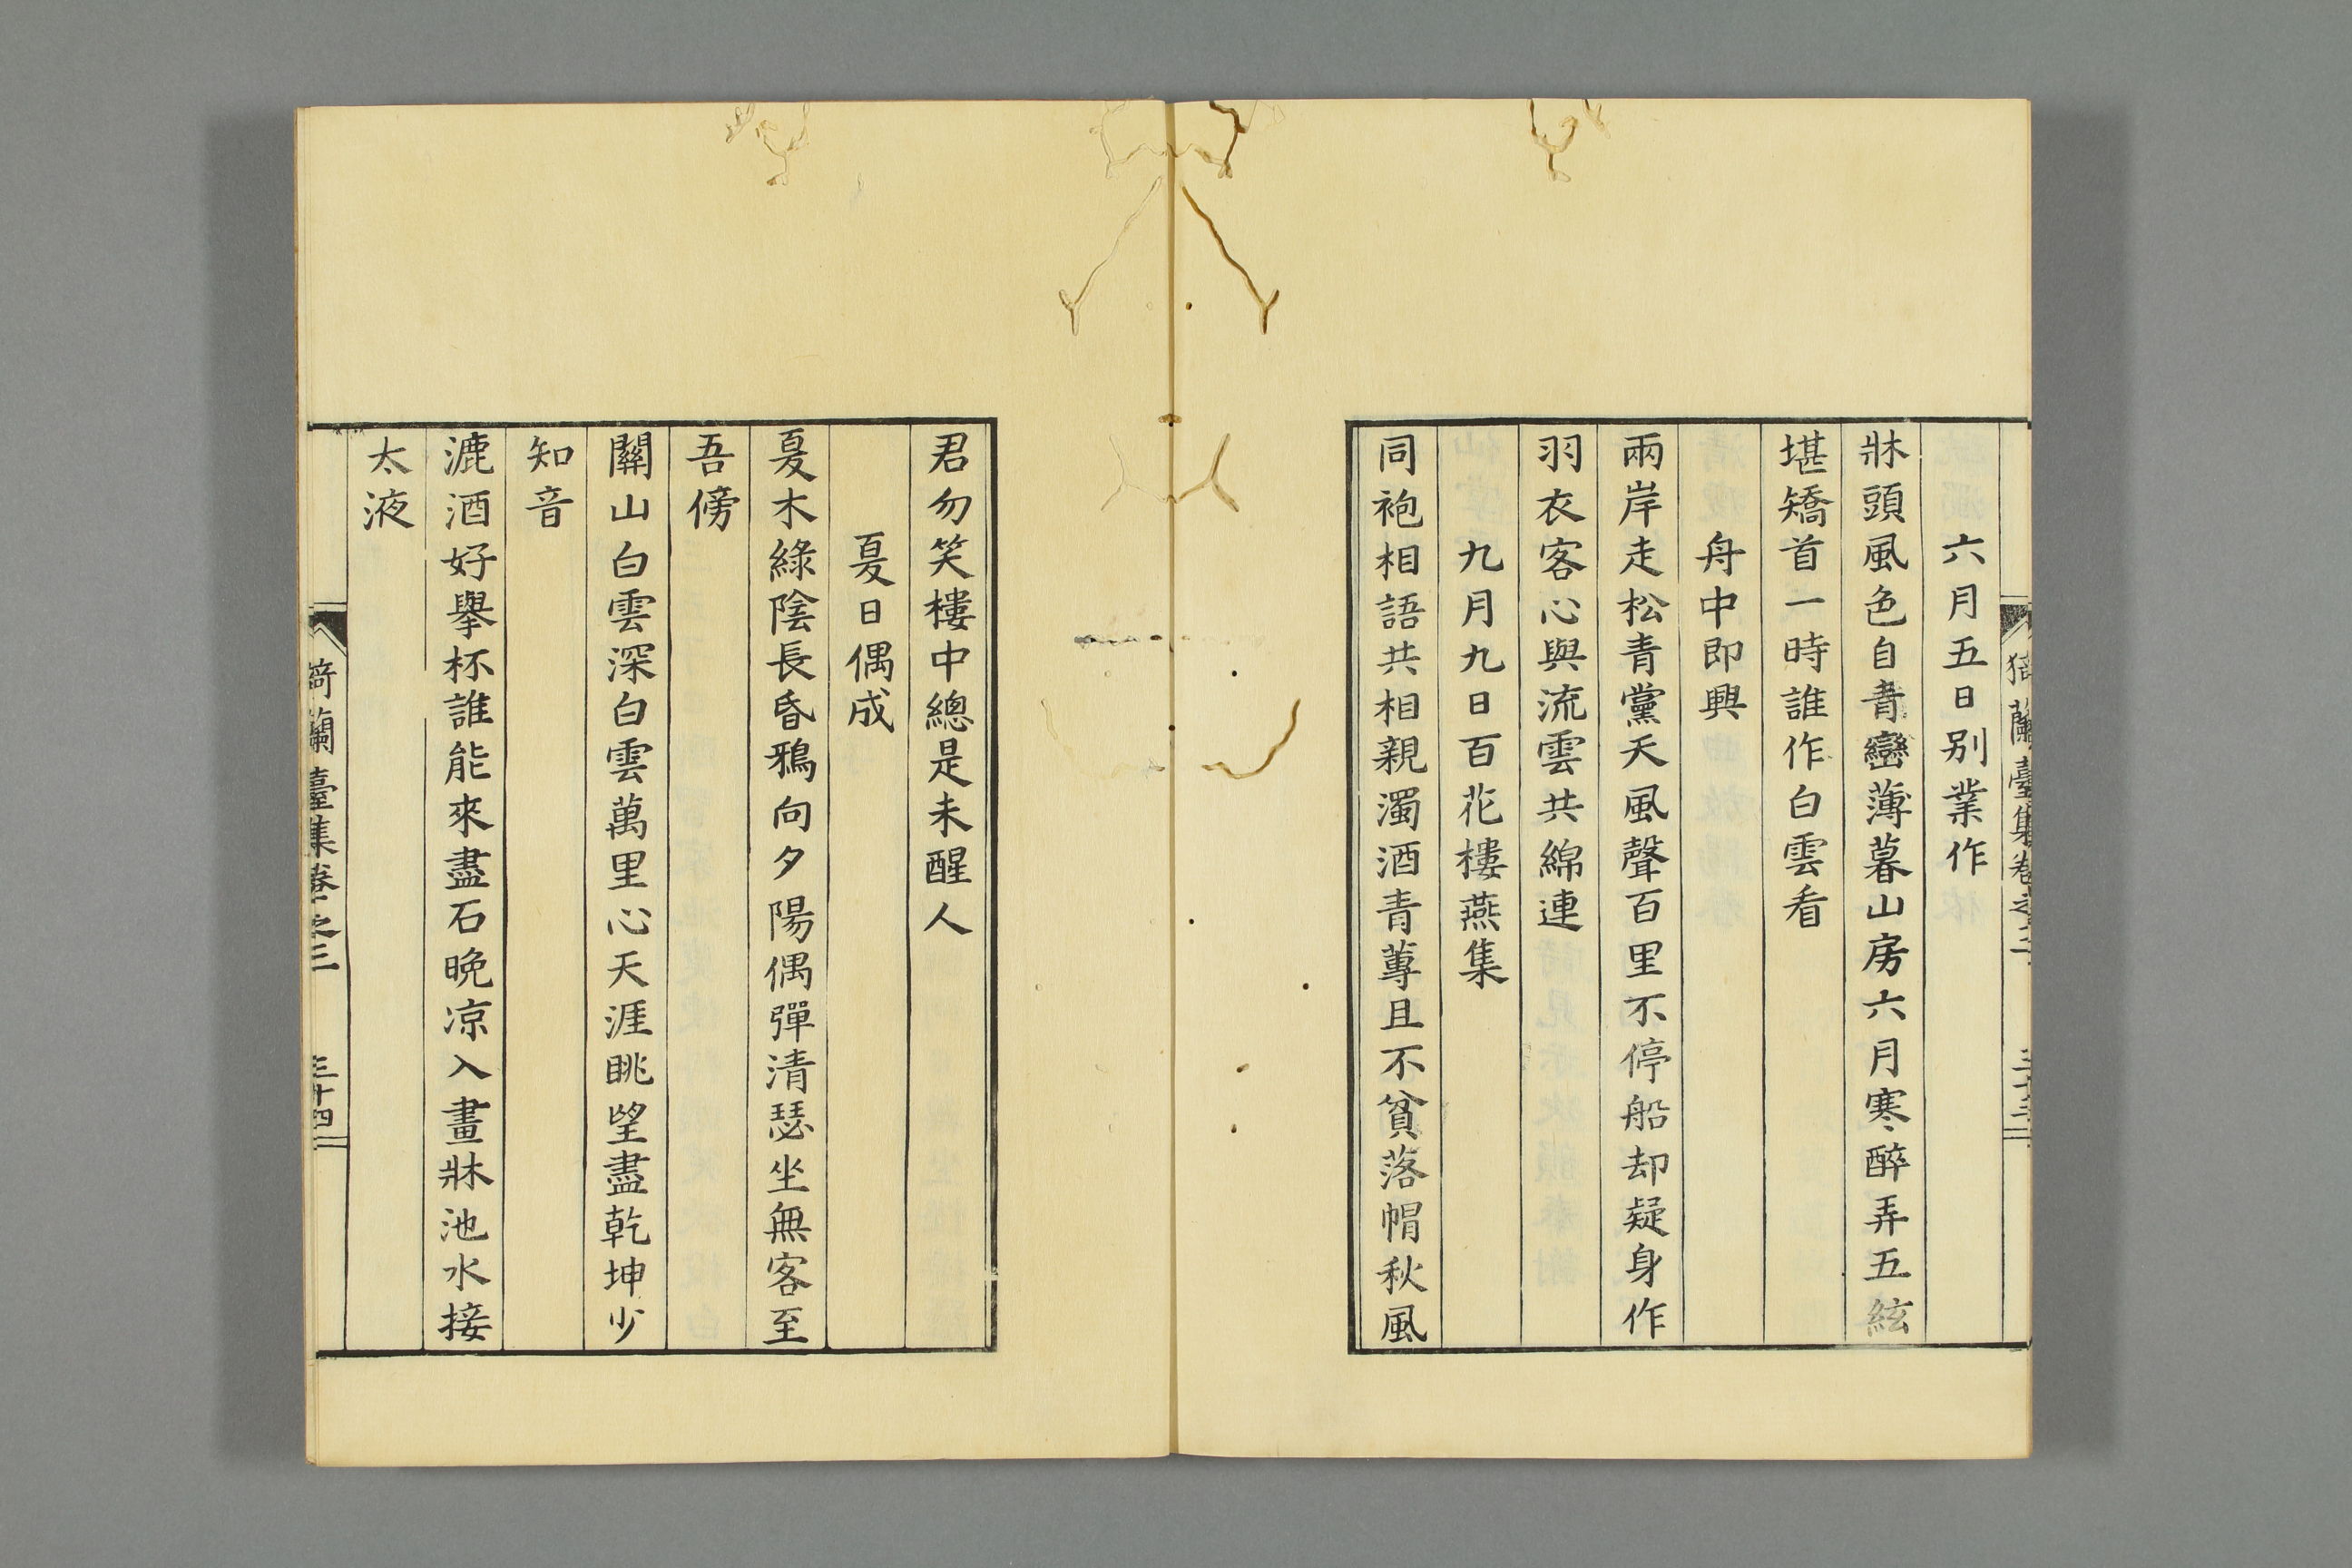 六月五日別業作
牀頭風色自青巒薄暮山房六月寒醉弄五絃
堪矯首一時誰作白雲看
舟中即興
兩岸走松青黨天風聲百里不停船却疑身作
羽衣客心與流雲共綿連
九月九日百花樓燕集
同袍相語共相親濁酒青蓴且不貧落帽秋風
君勿笑樓中總是未醒人
夏日偶成
夏木綠陰長昏鴉向夕陽偶彈清瑟坐無客至
吾傍
關山白雲深白雲萬里心天涯眺望盡乾坤少
知音
漉酒好擧杯誰能來盡石晚凉入畫牀池水接
太液
猗蘭臺集卷之三
三十四